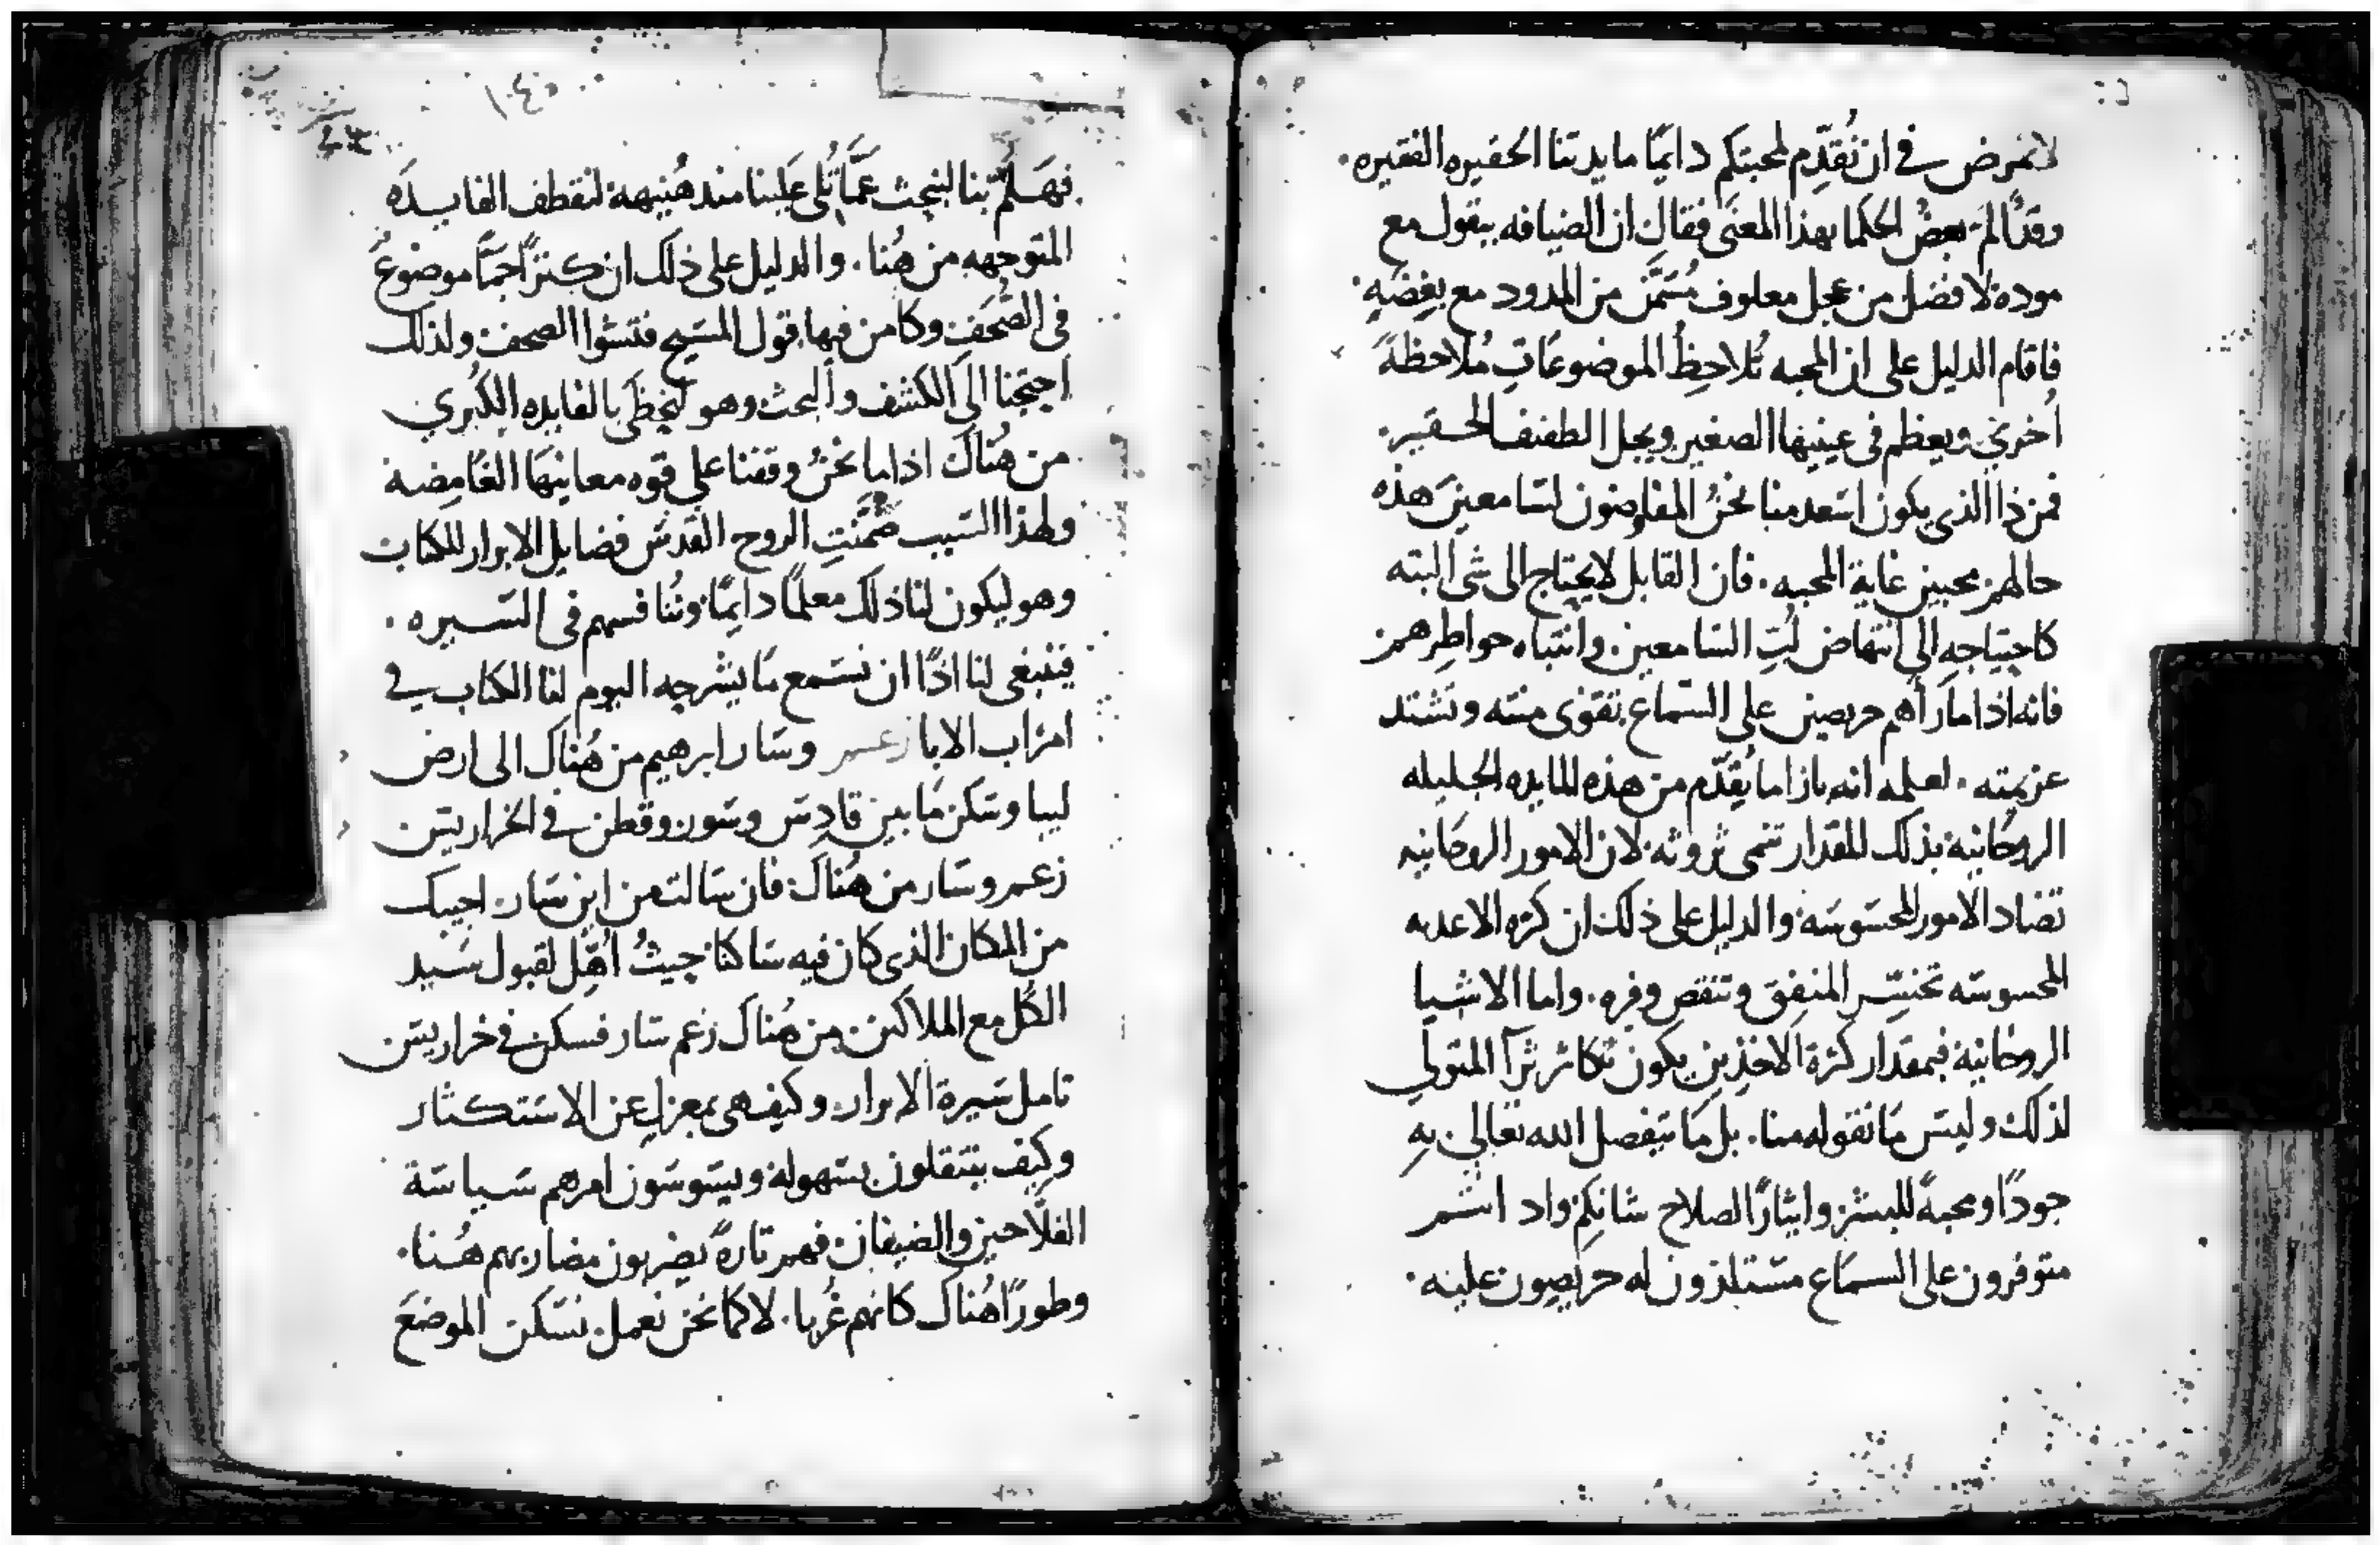 لانمرض في ان نُقدِّم لمحبتكم دايمًا مايدتنا الحقيره الفقيره.
وقد الم بعضُ الحكما بهذا المعنَى فقال ان الضيافه ببقول مع
موده لافضل من عجل معلوف مُسَمَّن من المدود مع بغضَهٍ.
فاقام الدليل على ان المحبه تُلاحظُ الموضوعَاتِ مُلاحظةً
اُخري ويعظم في عينيها الصغير ويجل الطفيف الحقير.
فمن ذا الذي يكون اسَعد منا نحنُ المفاوضون لسَامعينَ هذه
حالهم محبين غاية المحبه. فان القايل لا يحتاج الى شي البته
كاحتياجهِ الى انتهاض لُبِّ السَامعين. وانتباه خواطِرهم
فانه اذا ما رَأهم حريصين على السَماع تقوَى منته وتشتد
عزيمته. لعلمه انه بازا ما يُقدّم من هذه المايده الجليله
الروحَانيه بذلك المقدار تنمى ثروته. لان الامور الروحَانيه
تضاد الامور المحسَوسَه والدليل على ذلك ان كثره الاغديه
المحسوسَه تخسِّر المنفِق وتنقص وفره. واما الاشيا
الروحَانية فبمقدار كثرة الاخذين يكون تكاثر ثرآ المتولي
لذلك وليسَ مَا نقوله منا. بل مَا يتفضل الله تعالى بهِ
جودًا ومحبةً للبشر وايثارًا لصلاح شانكم واد انتم
متوفرون على السمَاع مسَتلذون له حريصون عليه.
١٠٤٠
فهَلُمَّ بنا لنبحث عَمَّا تُلى عَلينا مند هُنيهه لنقطف الفايدَه
المتوجهه من هُنا. والدليل على ذلك ان كنزًا جمًّا موضوعٌ
في الصُّحَف وكامن فيها قول المسَيح فتشوا الصحف ولذلك
احتجنا الى الكشف والبحث وهو لنحظَى بالفايده الكُبري
من هُناك اذا ما نحنُ وقفنا علي قوه معانيهَا الغَامِضه
ولهذا السَبب ضَمَّنتِ الروح القدسَ فضايل الابرار للكتاب
وهو ليكون لنا ذلك معلمًا دايمًا ونُنافسهم في السَيره.
فينبغي لنا اذًا ان نستَمع مَا يشرحه اليوم لنا الكتاب في
امراب الابا زعمر وسَار ابرهيم من هُناك الى ارض
ليبا وسَكن مَا بين قادسَ وسَور. وقطن في الخراريسَ
زعمر وسَار من هُناك فان سَالت من اين سَار. اجيبك
من المكان الذي كان فيه سَاكنًا حيثُ اُهِّل لقبول سَيد
الكل مع الملاكين من هُناك زعم سَار فسكن في خراريسَ
تامل سَيرة الابرار. وكيف هي بمعزلٍ عن الاستكثار
وكيف ينتقلون بسَهوله ويسَوسَون امرهم سَياسَة
الفلّاحين والضيفان فهم تارةً يضربون مضاربهم هُنا.
وطورًا هُناك كانهم غُربا. لا كما نحن نعمل نسَكن الموضعَ